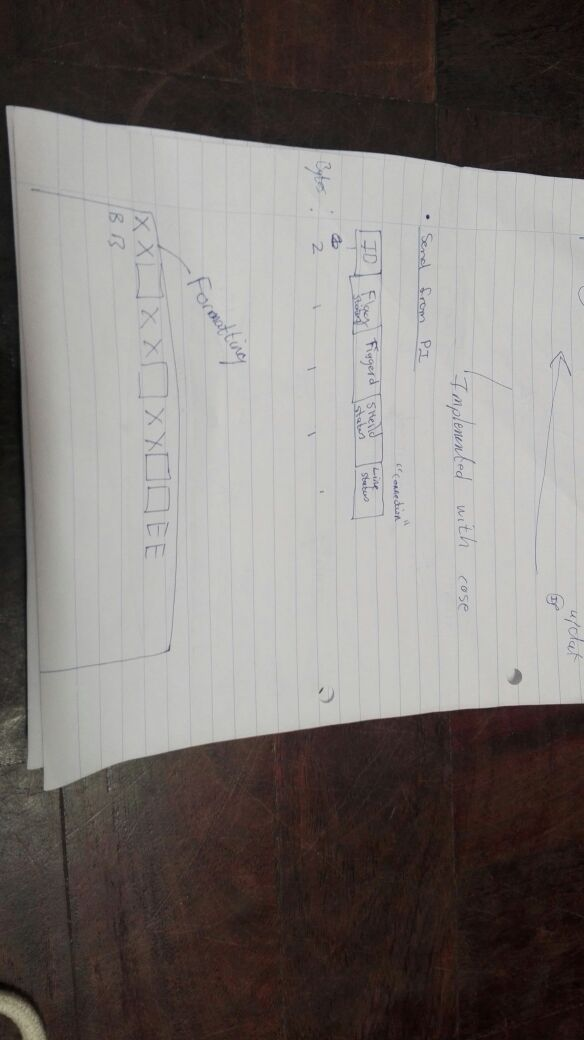 Implemented with case
• Send from PI
"connection"
ID Flag status Fingerd Sheild status Line status
Bytes: 2 1 1 1 1
Formatting
X X □ X X □ X X □ □ E E
B B